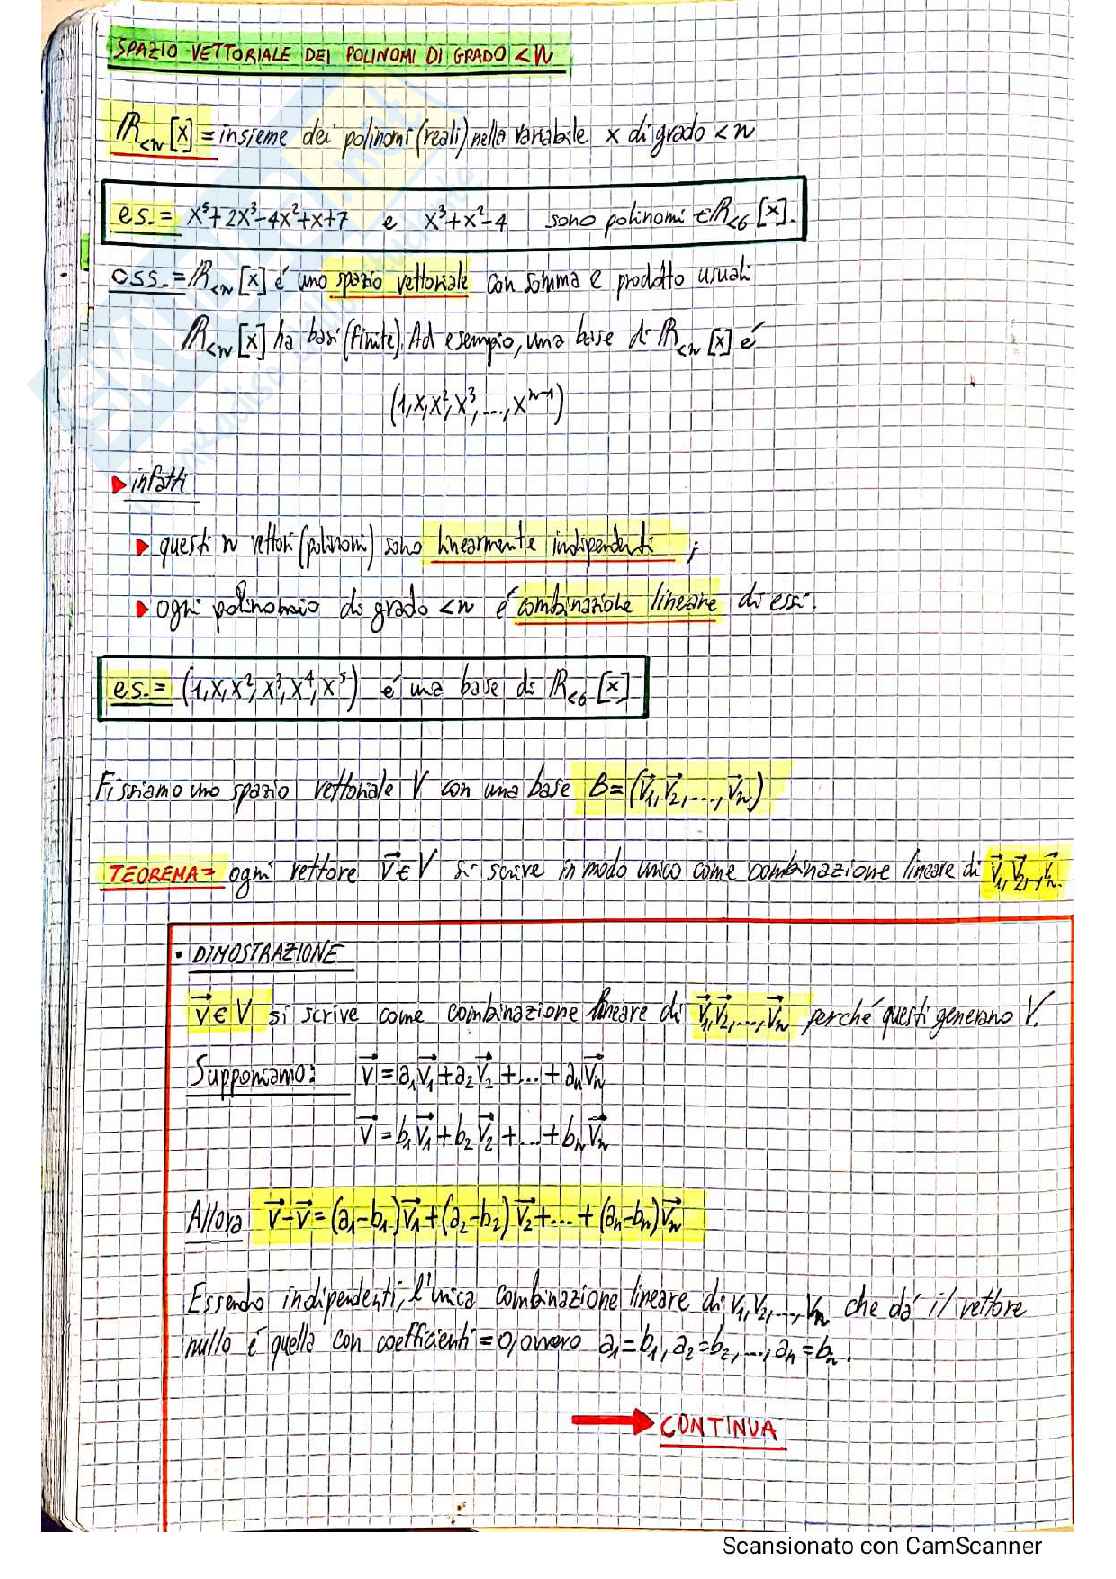 SPAZIO VETTORIALE DEI POLINOMI DI GRADO <n
ℝ<n[x] = insieme dei polinomi (reali) nella variabile x di grado <n
es. = x⁵+2x³-4x²+x+7 e x³+x²-4 sono polinomi ∈ ℝ<6[x].
OSS. = ℝ<n[x] é uno spazio vettoriale con somma e prodotto usuali
ℝ<n[x] ha basi (finite). Ad esempio, una base di ℝ<n[x] é
(1,x,x²,x³,...,xⁿ⁻¹)
infatti
questi n vettori (polinomi) sono linearmente indipendenti ;
ogni polinomio di grado <n é combinazione lineare di essi.
es. = (1,x,x²,x³,x⁴,x⁵) é una base di ℝ<6[x]
Fissiamo uno spazio vettoriale V con una base B=(v⃗₁,v⃗₂,...,v⃗ₙ)
TEOREMA= ogni vettore v⃗∈V si scrive in modo unico come combinazione lineare di v⃗₁,v⃗₂,..,v⃗ₙ.
• DIMOSTRAZIONE
v⃗∈V si scrive come combinazione lineare di v⃗₁,v⃗₂,...,v⃗ₙ perché questi generano V.
Supponiamo: v⃗=a₁v⃗₁+a₂v⃗₂+...+aₙv⃗ₙ
v⃗=b₁v⃗₁+b₂v⃗₂+...+bₙv⃗ₙ
Allora v⃗-v⃗=(a₁-b₁)v⃗₁+(a₂-b₂)v⃗₂+...+(aₙ-bₙ)v⃗ₙ
Essendo indipendenti, l'unica combinazione lineare di v₁,v₂,...,vₙ che dá il vettore
nullo é quella con coefficienti=0, ovvero a₁=b₁,a₂=b₂,...,aₙ=bₙ.
CONTINUA
Scansionato con CamScanner